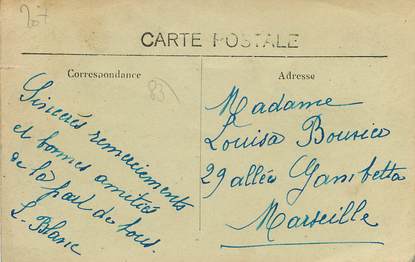 207
CARTE POSTALE
Correspondance
83
Sincères remerciements
et bonnes amitiés
de la part de tous.
L. Blanc
Adresse
Madame
Louisa
29 allée Gambetta
Marseille